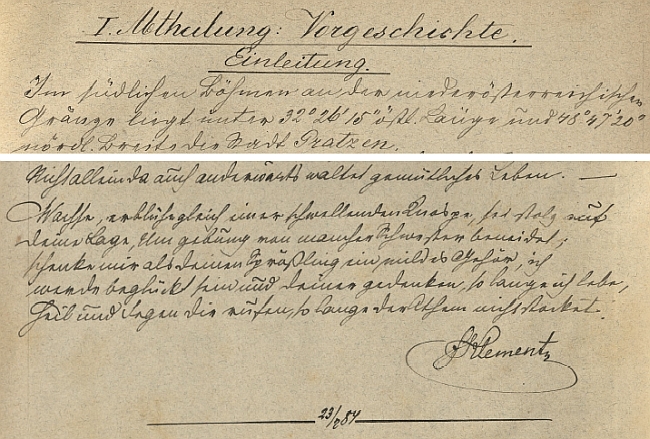 I. Abtheilung: Vorgeschichte.
Einleitung.
Im südlichen Böhmen an der niederösterreichischen
Gränze liegt unter 32° 26' 15" östl. Länge und 48° 47' 20"
nördl. Breite die Stadt Gratzen.
Nicht allein da auch anderwärts waltet gemütliches Leben. —
Wachse, erblühe gleich einer schwellenden Knospe, sei stolz auf
deine Lage, Umgebung von mancher Schwester beneidet;
schenke mir als deinen Sprößling ein mildes Gehör, ich
werde beglückt sein und deiner gedenken, so lange ich lebe,
Heil und Segen dir rufen, so lange der Athem nicht stocket.
Klement